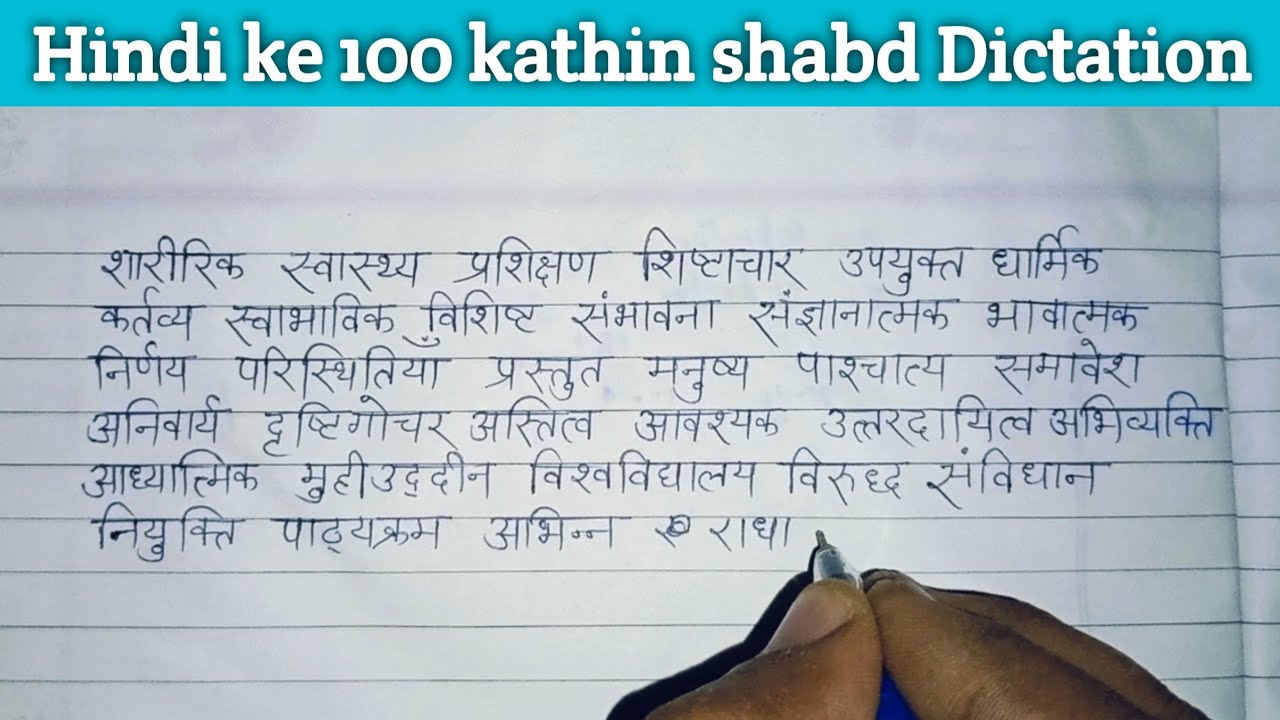 Hindi ke 100 kathin shabd Dictation
शारीरिक स्वास्थ्य प्रशिक्षण शिष्टाचार उपयुक्त धार्मिक
कर्तव्य स्वाभाविक विशिष्ट संभावना संज्ञानात्मक भावात्मक
निर्णय परिस्थितियाँ प्रस्तुत मनुष्य पाश्चात्य समावेश
अनिवार्य दृष्टिगोचर अस्तित्व आवश्यक उत्तरदायित्व अभिव्यक्ति
आध्यात्मिक मुहीउद्दीन विश्वविद्यालय विरुद्ध संविधान
नियुक्ति पाठ्यक्रम अभिन्न राधा